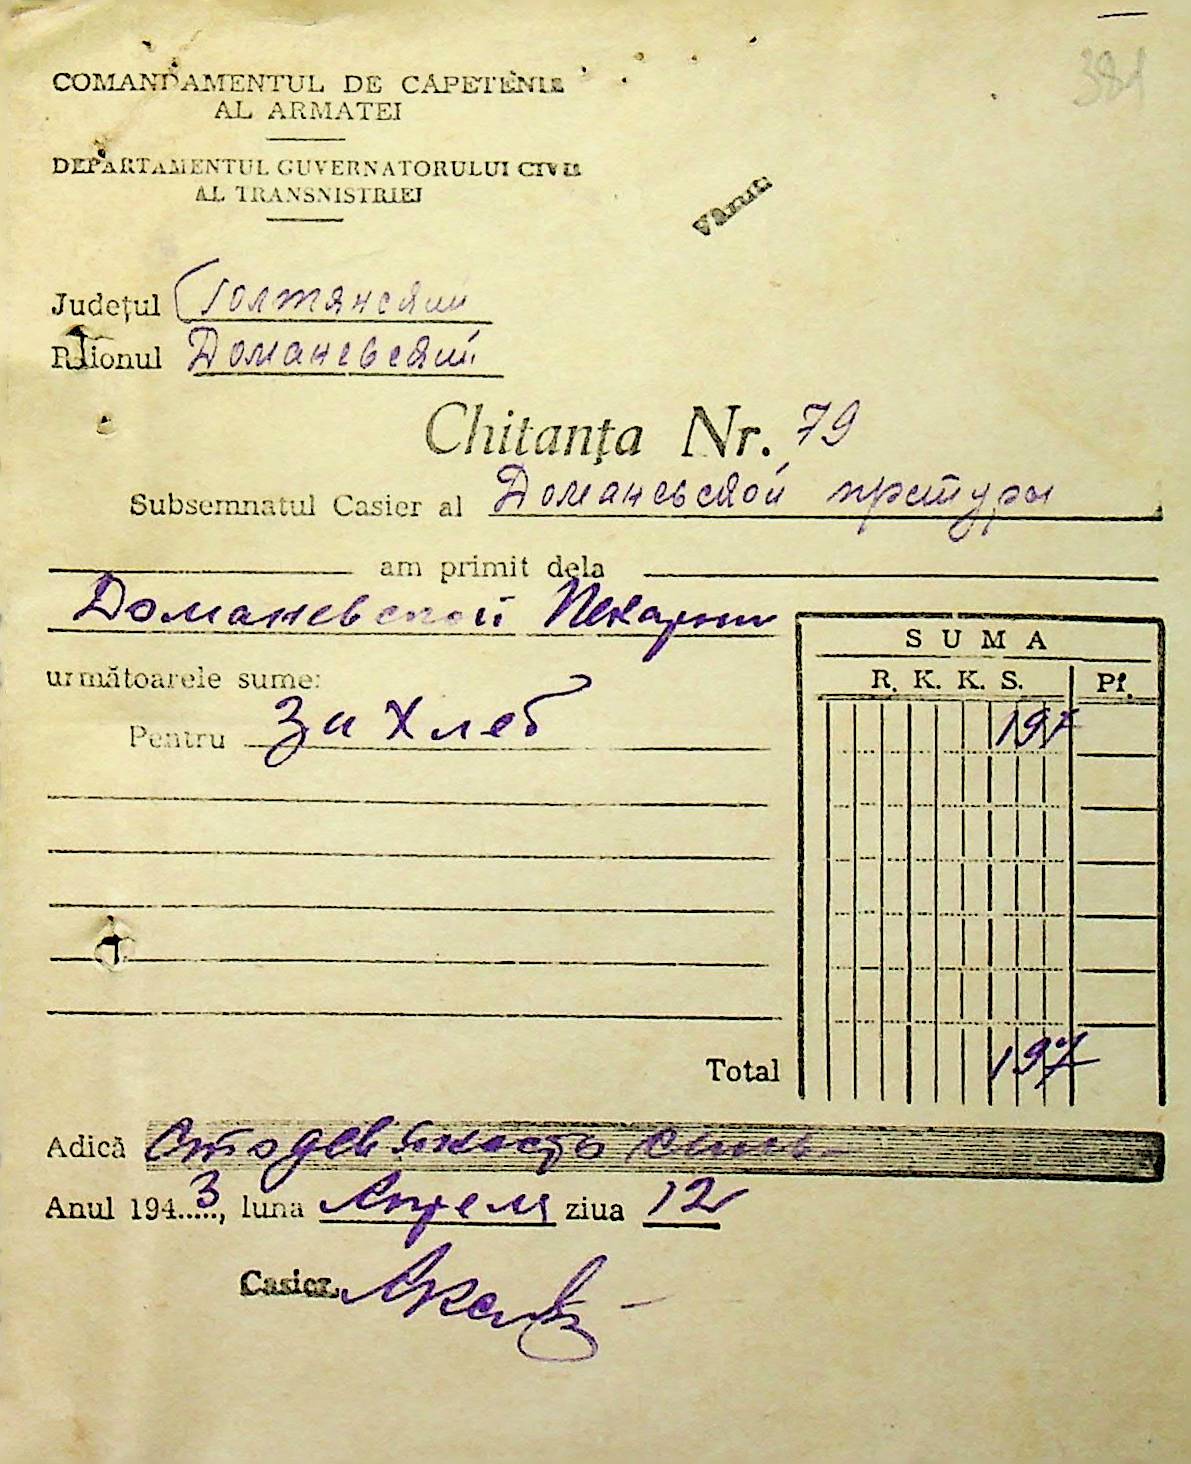 381
COMANDAMENTUL DE CAPETENIE
AL ARMATEI
DEPARTAMENTUL GUVERNATORULUI CIVIL
AL TRANSNISTRIEI
Județul Голтянский
Raionul Доманевский
Chitanța Nr. 79
Subsemnatul Casier al Доманевской претуры
am primit dela
Доманевской Пекарни
SUMA
următoarele sume:
R. K. K. S. Pf.
Pentru За Хлеб
197
Total 197
Adică Сто девяносто семь
Anul 194..3.., luna Апреля ziua 12
Casier,